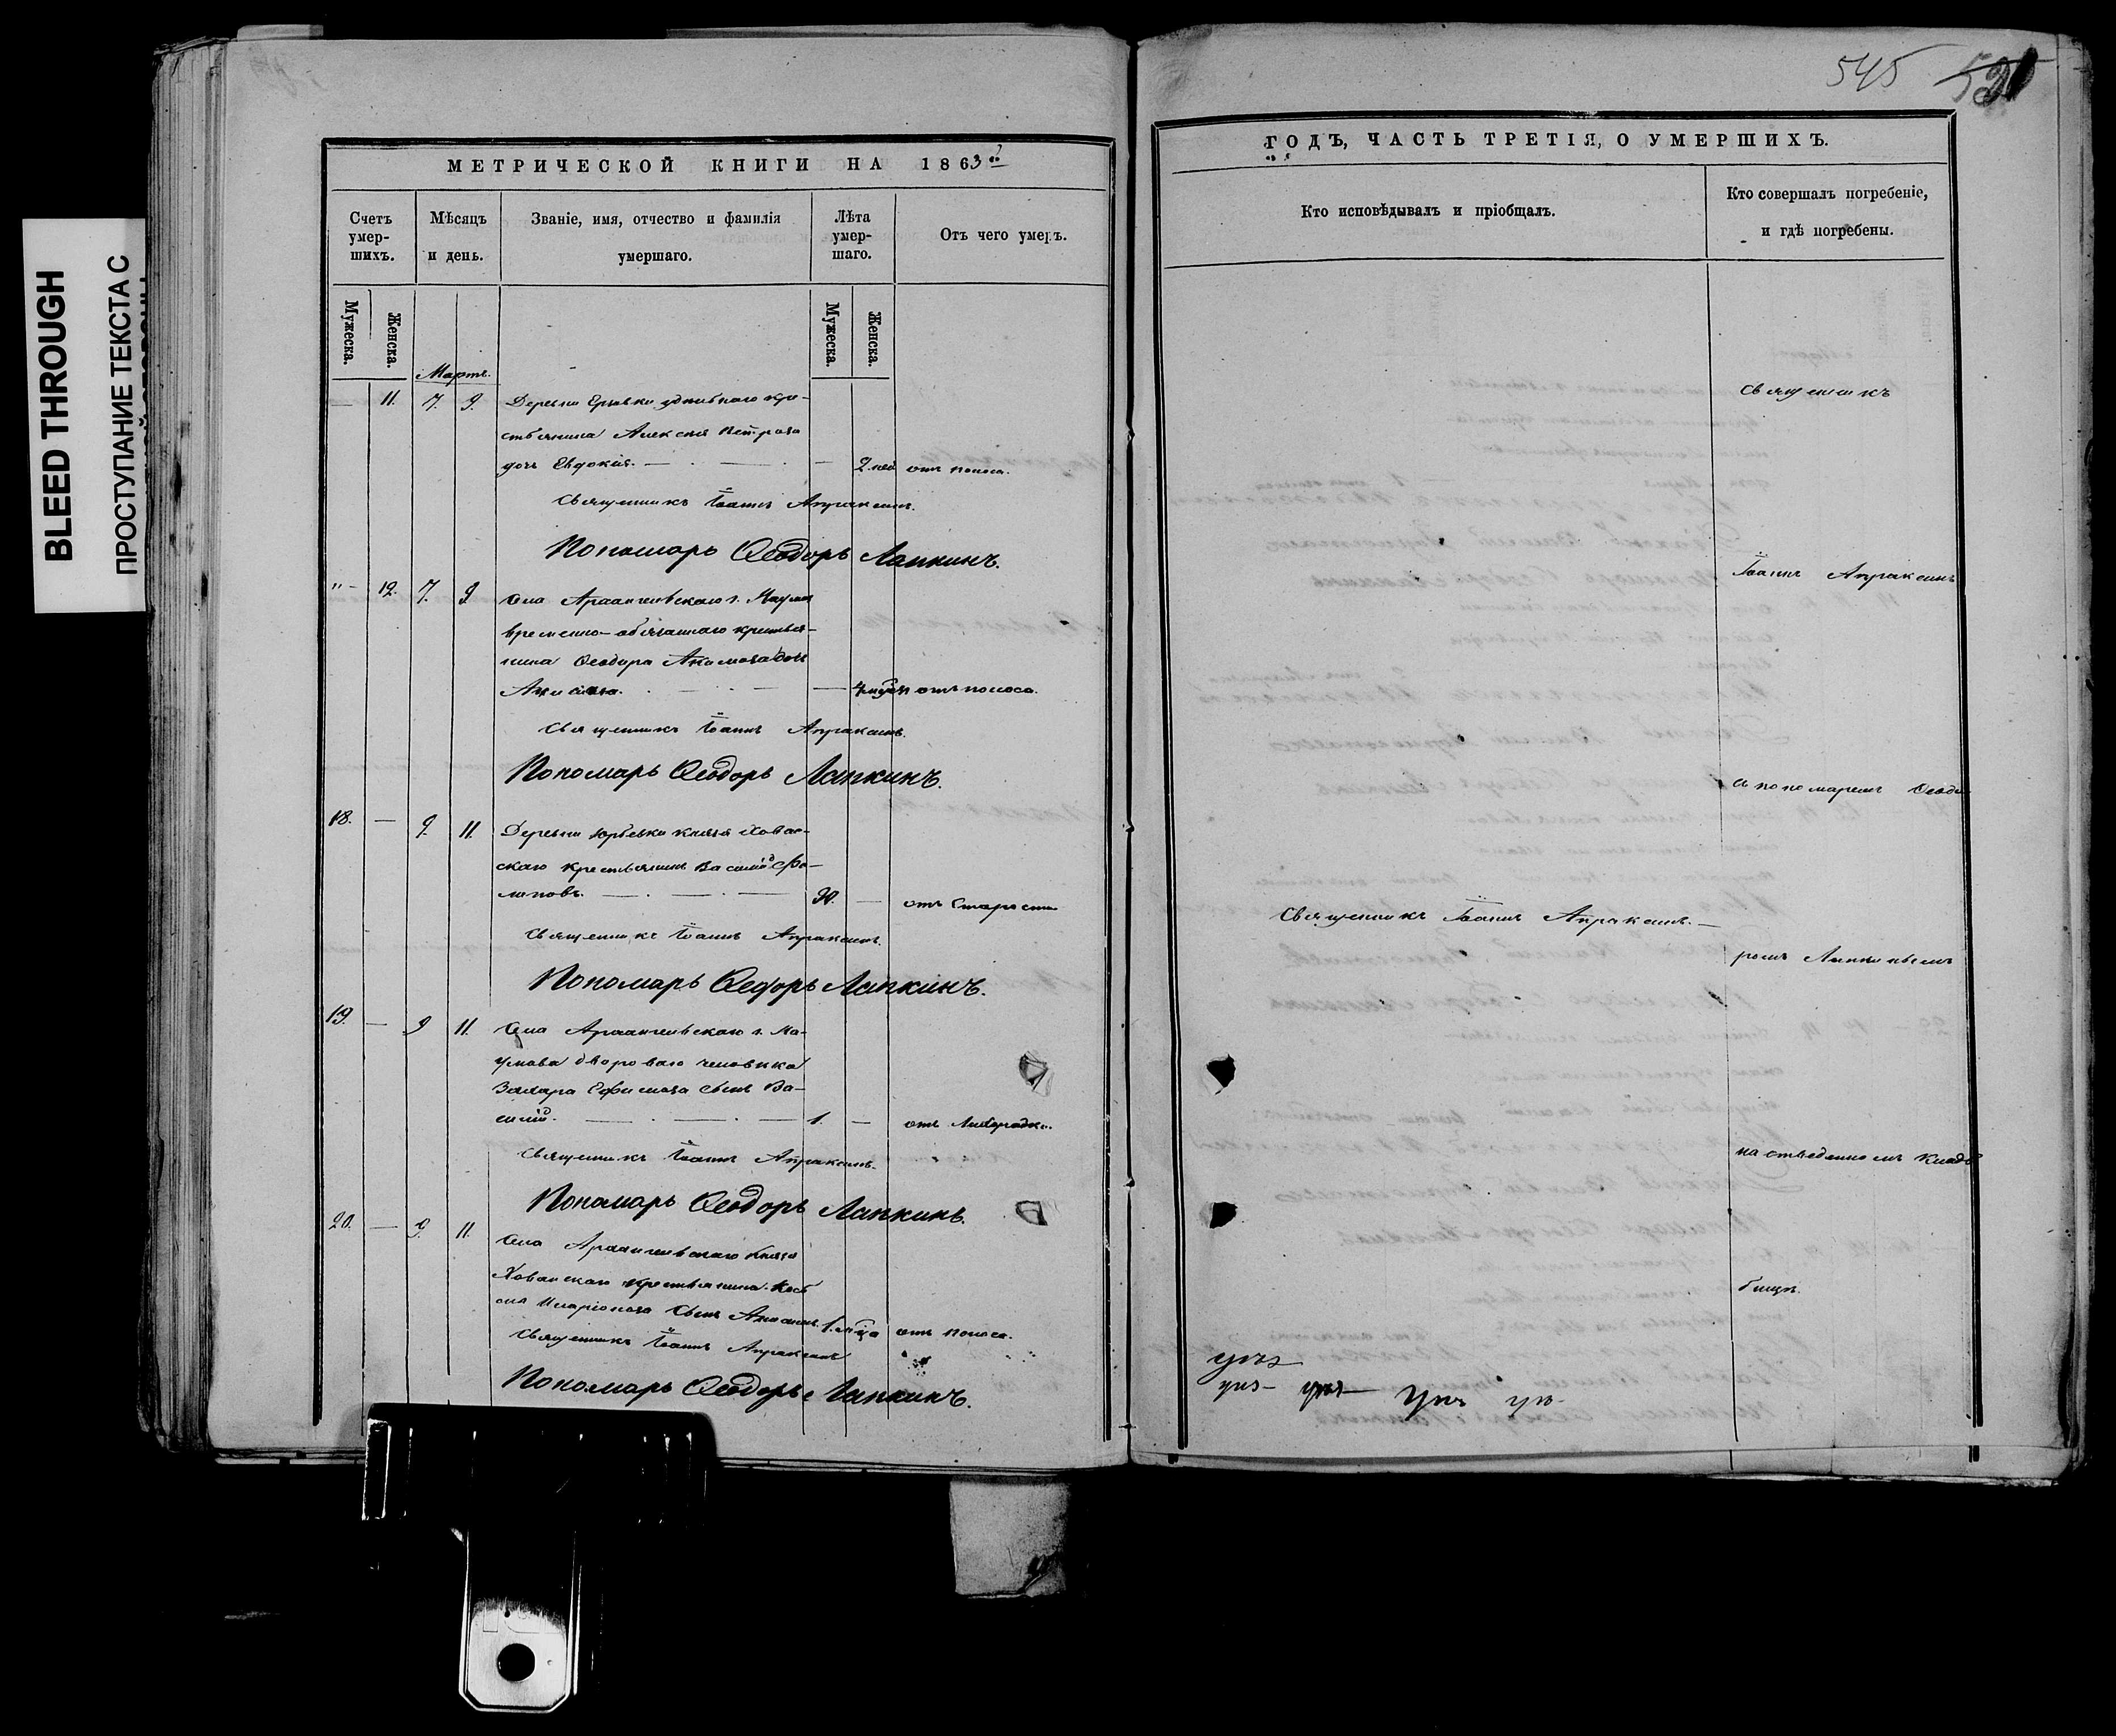 BLEED THROUGH
ПРОСТУПАНИЕ ТЕКСТА С
МЕТРИЧЕСКОЙ КНИГИ НА 1863
Счетъ умершихъ.
Мѣсяцъ и день.
Званіе, имя, отчество и фамилія
умершаго.
Лѣта умершаго.
Отъ чего умеръ.
Мужеска.
Женска.
Мужеска.
Женска.
Мартъ.
11. 7. 9. Деревни удѣльнаго кре-
стьянина Алексѣя Петрова
дочь Евдокія. 2 нед отъ поноса.
Священникъ Іоаннъ Апраксинъ.
Пономарь Ѳеодоръ Лапкинъ.
12. 7. 9 Села Архангельскаго г. Наумова
временно-обязаннаго крестья-
нина Ѳеодора Акимова дочь
отъ поноса.
Священникъ Іоаннъ Апраксинъ.
Пономарь Ѳеодоръ Лапкинъ.
18. — 9. 11. Деревни Юрьевки князя Хован-
скаго крестьянинъ Василій Фи-
липовъ. 90. — отъ Старости
Священникъ Іоаннъ Апраксинъ.
Пономарь Ѳедоръ Лапкинъ.
19. — 9 11. Села Архангельскаго г. На-
умова двороваго человѣка
Захара Ефимова сынъ Ва-
силій. 1. — отъ Лихорадки.
Священникъ Іоаннъ Апраксинъ.
Пономарь Ѳеодоръ Лапкинъ.
20. — 9. 11. Села Архангельскаго Князя
Хованскаго крестьянина
Иларіонова сынъ 1. мца отъ поноса.
Священникъ Іоаннъ Апраксинъ
Пономарь Ѳеодоръ Лапкинъ.
545
ГОДЪ, ЧАСТЬ ТРЕТІЯ, О УМЕРШИХЪ.
Кто исповѣдывалъ и пріобщалъ.
Кто совершалъ погребеніе,
и гдѣ погребены.
Священникъ
Іоаннъ Апраксинъ
съ пономаремъ Ѳеодо-
Священникъ Іоаннъ Апраксинъ.
ромъ Лапкинымъ
на отведенномъ кладъ
бищѣ.